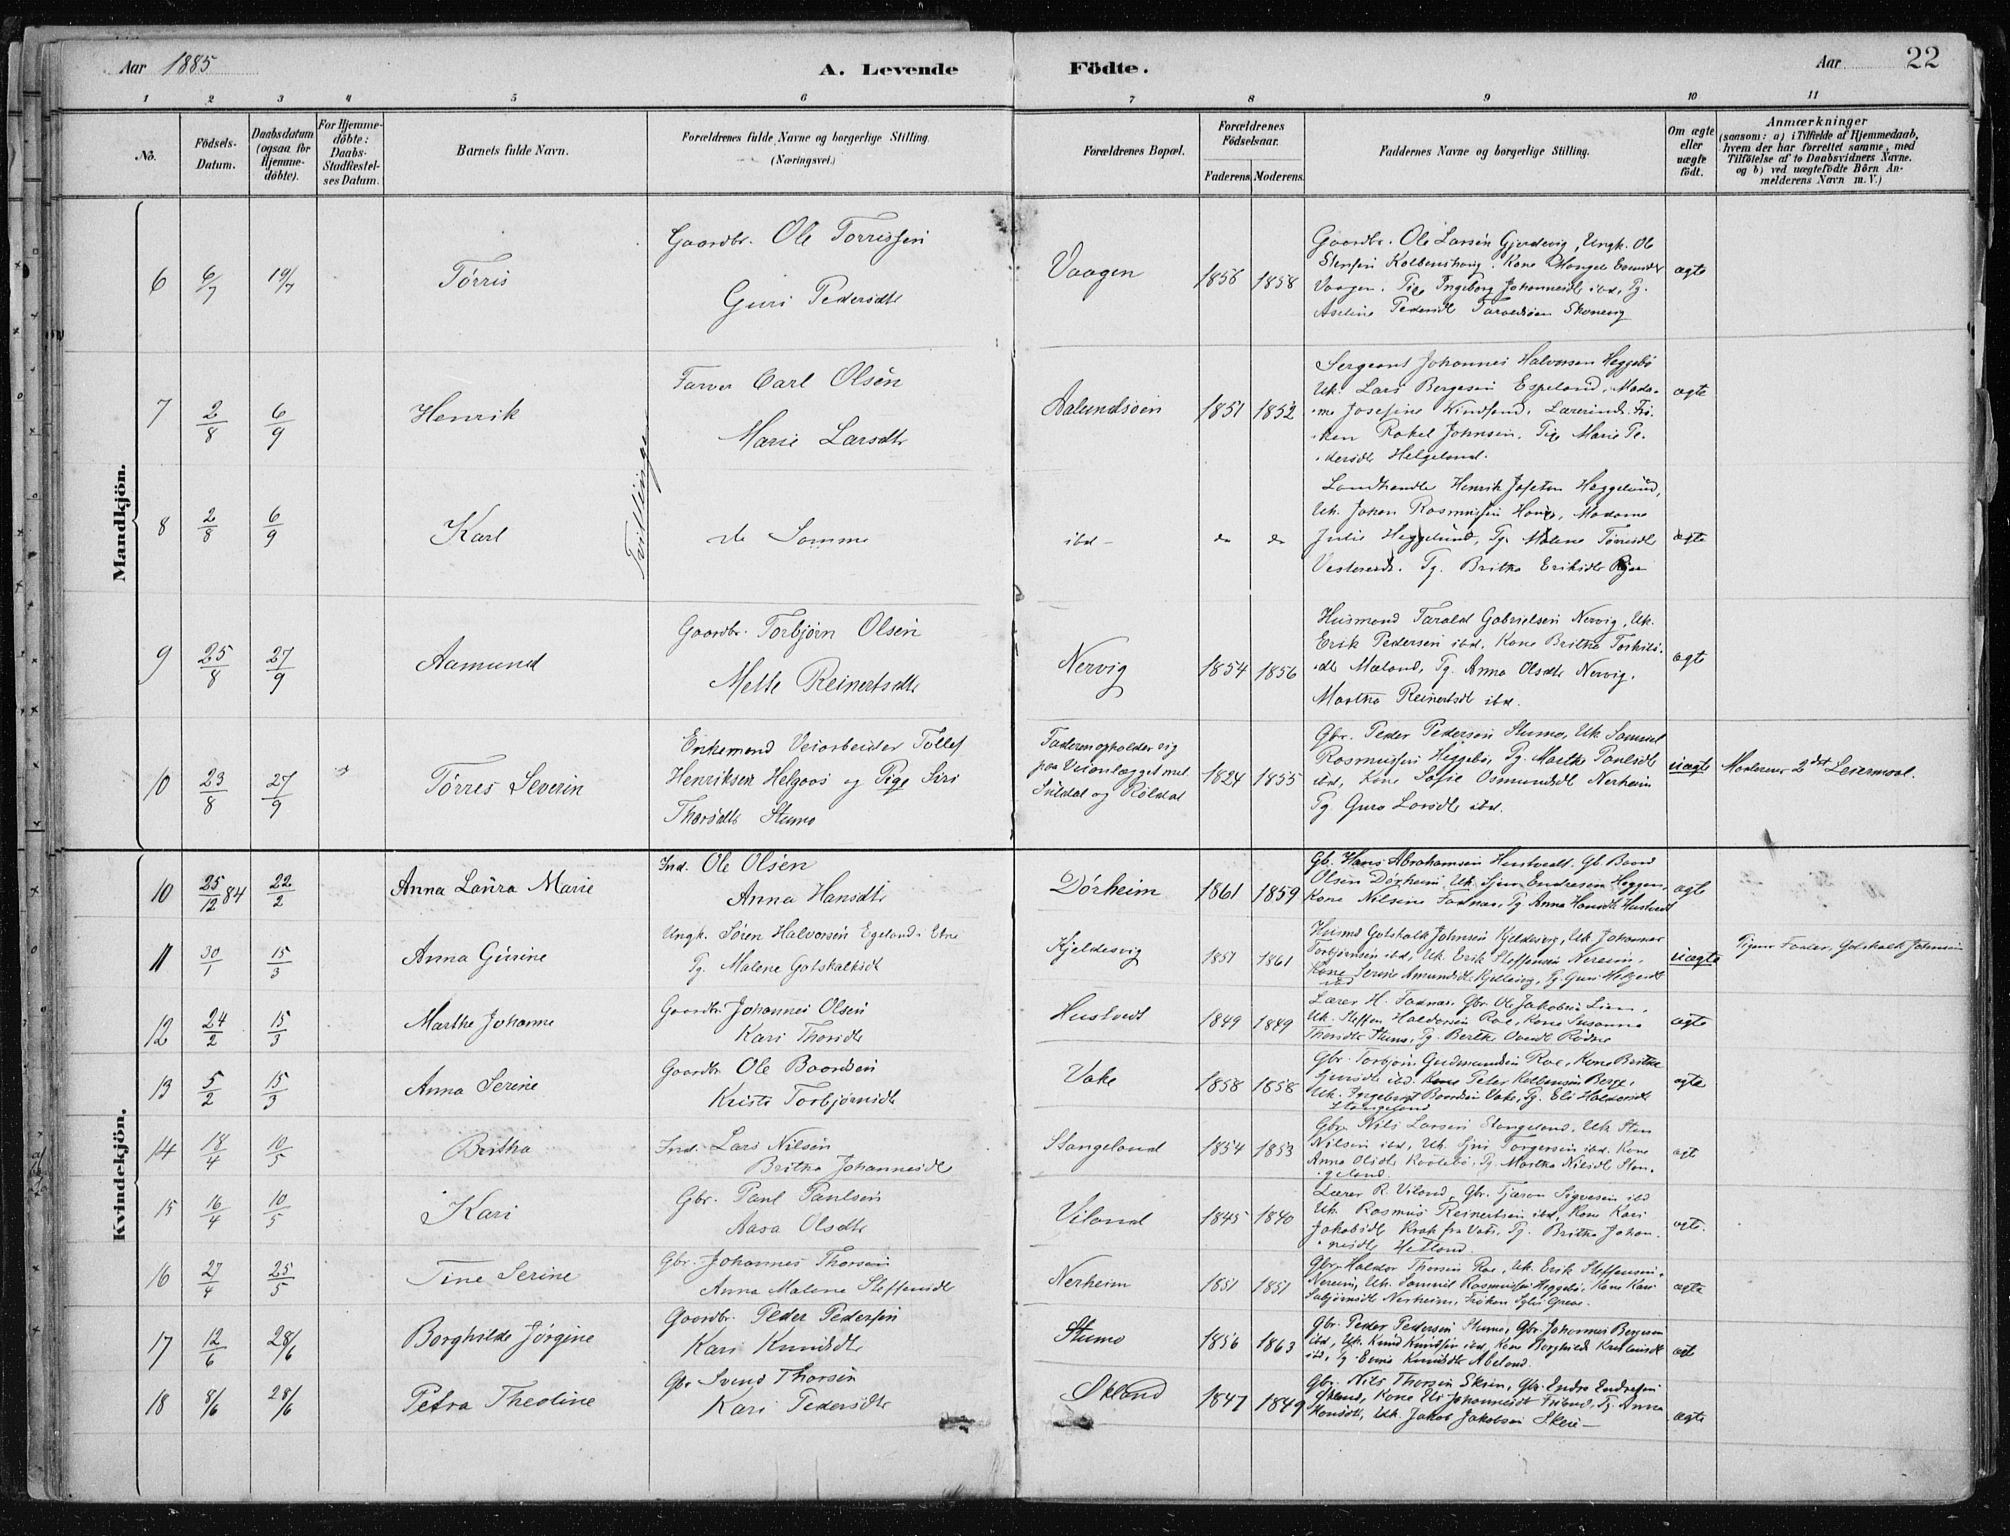 Aar 1885
A. Levende Födte.
Aar 22
1 2 3 4 5 6 7 8 9 10 11
No.
Födsels-Datum.
Daabsdatum (ogsaa for Hjemme-döbte).
For Hjemme-döbte: Daabs-Stadfæstel-ses Datum.
Barnets fulde Navn.
Forældrenes fulde Navne og borgerlige Stilling. (Næringsvei.)
Forældrenes Bopæl.
Forældrenes Födselsaar.
Faderens. Moderens.
Faddernes Navne og borgerlige Stilling.
Om ægte eller uægte födt.
Anmærkninger
(saasom: a) i Tilfælde af Hjemmedaab, hvem der har forrettet samme, med Tilföielse af to Daabsvidners Navne. og b) ved uægtefödte Börn Anmelderens Navn m. V.)
Mandkjön.
6 6/7 19/7 Tørris
Gaardbr. Ole Torrissen
Guri Pedersdtr
Vaagen 1856 1858
Gaardbr. Ole Larsen Gjerdevig, Ungk. Ole
Vaagen. Pige Ingeborg Johannesdt ibd, Pg.
ægte
7 2/8 6/9 Henrik
Farver Carl Olsen
Marie Larsdtr
Tvillinger
Aalundsøen 1851 1852
Sergeant Johannes Halvorsen Heggebø
Uk. Lars Børgesen Espeland, Mada-
me Josefine Kindsend, Lærerinde Frø-
ken Rakel Johnsen, Pige Marie Pe-
dersdtr Helgeland.
ægte
8 2/8 6/9 Karl
de Samme
ibd - do do
Landhandler Henrik Heggelund,
Uk. Johan Rasmussen Madame
Julie Heggelund, Pg. Malene Tørresdtr
Pg. Britha Eriksdtr
ægte
9 25/8 27/9 Aamund
Gaardbr. Torbjørn Olsen
Mette Reinertsdtr
Nervig 1854 1856
Husmand Tarald Gabrielsen Nervig, Uk.
Erik Pedersen ibd. Kone Britha
Mæland, Pg. Anna Olsdtr Nervig,
Martha Reinertsdt ibd.
ægte
10 23/8 27/9 Tørres Severin
Enkemand Veiarbeider Tollef
Henriksen Helgaas og Pige Siri
Thorsdtr Stumo
Faderen opholder sig
paa Veianlægget mel.
Suldal og Røldal
1824 1855
Gbr. Peder Pedersen Stumo, Uk Samuel
Rasmussen Heggebø, Pg. Marthe Paulsdtr
ibd, Kone Sofie Osmundsdt Nerheim
Pg. Guro Larsdtr ibd.
uægte
Moderens 2det Leiermaal.
Kvindekjön.
10 25/12 84 22/2 Anna Laura Marie
Ind. Ole Olsen
Anna Hansdtr
Dørheim 1861 1859
Gb. Hans Abrahamsen Hustvedt. Gb. Baard
Olsen Dørheim, Uk. Sjur Endresen Heggen,
Kone Nilsine Fadnæs, Pg. Anna Hansdtr Hustvedt
ægte
11 30/1 15/3 Anna Gurine
Ungk. Søren Halvorsen Egeland i Etne
Pg. Malene Gotskalksdt
Kjeldesvig 1857 1861
Husmd Gotskalk Johnsen Kjeldesvig, Uk. Johannes
Torbjørnsen ibd, Uk. Erik Steffensen Nereim,
Kone Serine Amundsdt Kjeldesvig, Pg. Guri
ibd
uægte
Pigens Fader, Gotskalk Johnsen
12 24/2 15/3 Marthe Johanne
Gaardbr. Johannes Olsen
Kari Thorsdt
Hustvedt 1849 1849
Lærer H. Fadnæs, Gbr. Ole Jakobsen Lien,
Uk. Steffen Haldorsen Roe, Kone Susanna
Thorsdtr Stumo, Pg. Berthe Rødne
ægte
13 5/2 15/3 Anna Serine
Gaardbr. Ole Baardsen
Kristi Torbjørnsdt
Vake 1858 1858
Gbr. Torbjørn Gudmundsen Roe, Kone Britha
ibd. Peter Kolbensen Berge,
Uk. Ingebrigt Baardsen Vake, Pg. Eli Haldorsdt
Stangeland
ægte
14 18/4 10/5 Britha
Ind. Lars Nilsen
Britha Johannesdt
Stangeland 1854 1853
Gbr. Nils Larsen Stangeland, Uk. Sten
Nilsen ibd, Uk. Torgersen ibd. Kone
Anna Olsdtr Pg. Martha Nilsdt Stan-
geland
ægte
15 16/4 10/5 Kari
Gbr. Paul Paulsen
Aasa Olsdtr
Viland 1845 1840
Lærer R. Viland, Gbr. Tjæran Sigvesen ibd
Uk. Rasmus Reinertsen ibd, Kone Kari
Jakobsdt Krak fra Vats, Pg. Britha Johan-
nesdt Hetland.
ægte.
16 27/4 25/5 Tine Serine
Gbr. Johannes Thorsen
Anna Malene Steffensdt
Nerheim 1851 1851
Gbr. Haldor Thorsen Roe, Uk. Erik Steffensen
Nereim, Uk. Samuel Rasmussen Heggebø, Kone Kari
Nerheim, Frøken
ægte
17 12/6 28/6 Borghilde Jørgine
Gaardbr. Peder Pedersen
Kari Knudsdtr
Stumo 1856 1863
Gbr. Peder Pedersen Stumo, Gbr. Johannes Børgesen
ibd, Uk. Knud Knudsen ibd, Kone Borghilde
ibd, Pg. Knudsdtr Abeland.
ægte
18 8/6 28/6 Petra Theoline
Gbr Svend Thorsen
Kari Pedersdtr
Økland 1847 1849
Gbr. Nils Thorsen Skeie, Gbr. Endre Endresen
Økland, Kone Eli Johannesdt Pg. Anna
Hansdt, Uk. Jakob Jakobsen Skeie -
ægte